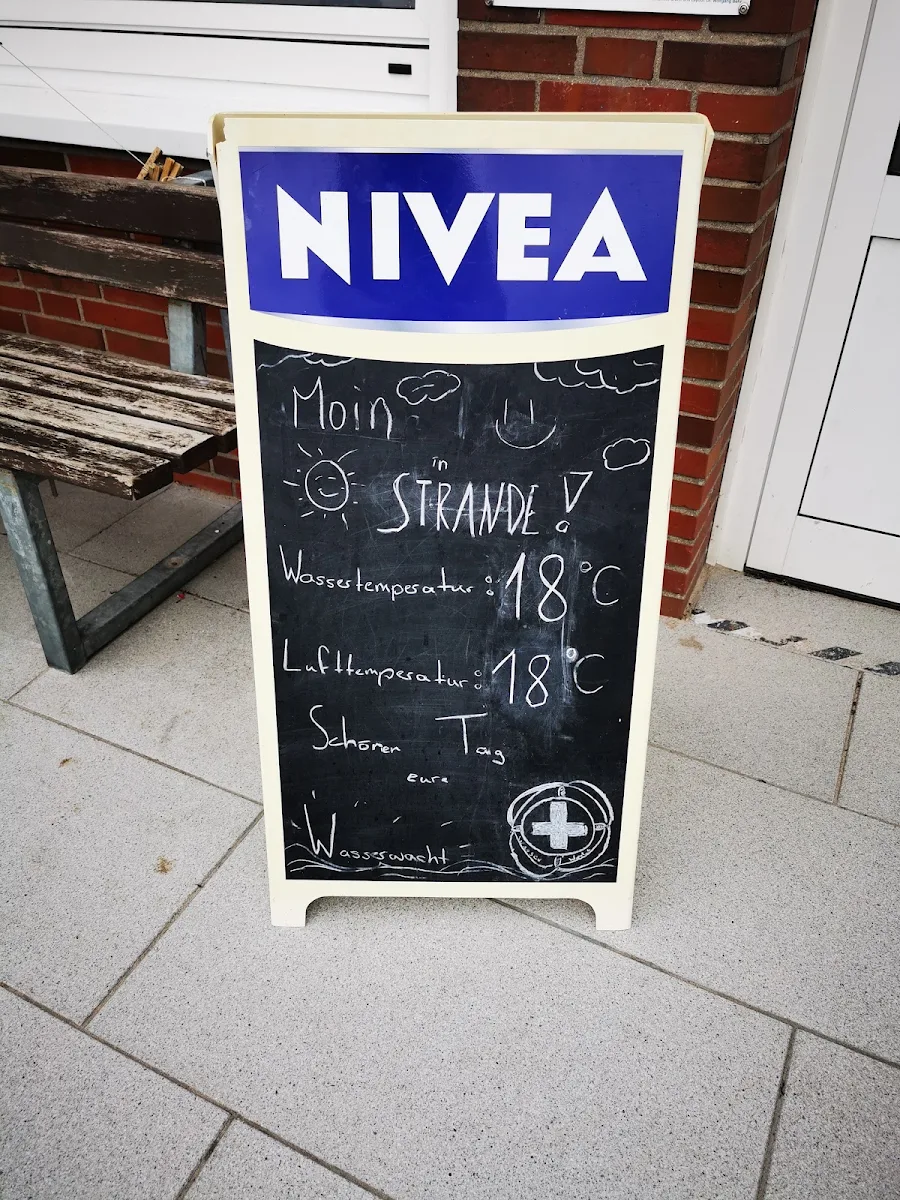 NIVEA
Moin
in
STRANDE!
Wassertemperatur: 18°C
Lufttemperatur: 18°C
Schönen Tag
eure
Wasserwacht